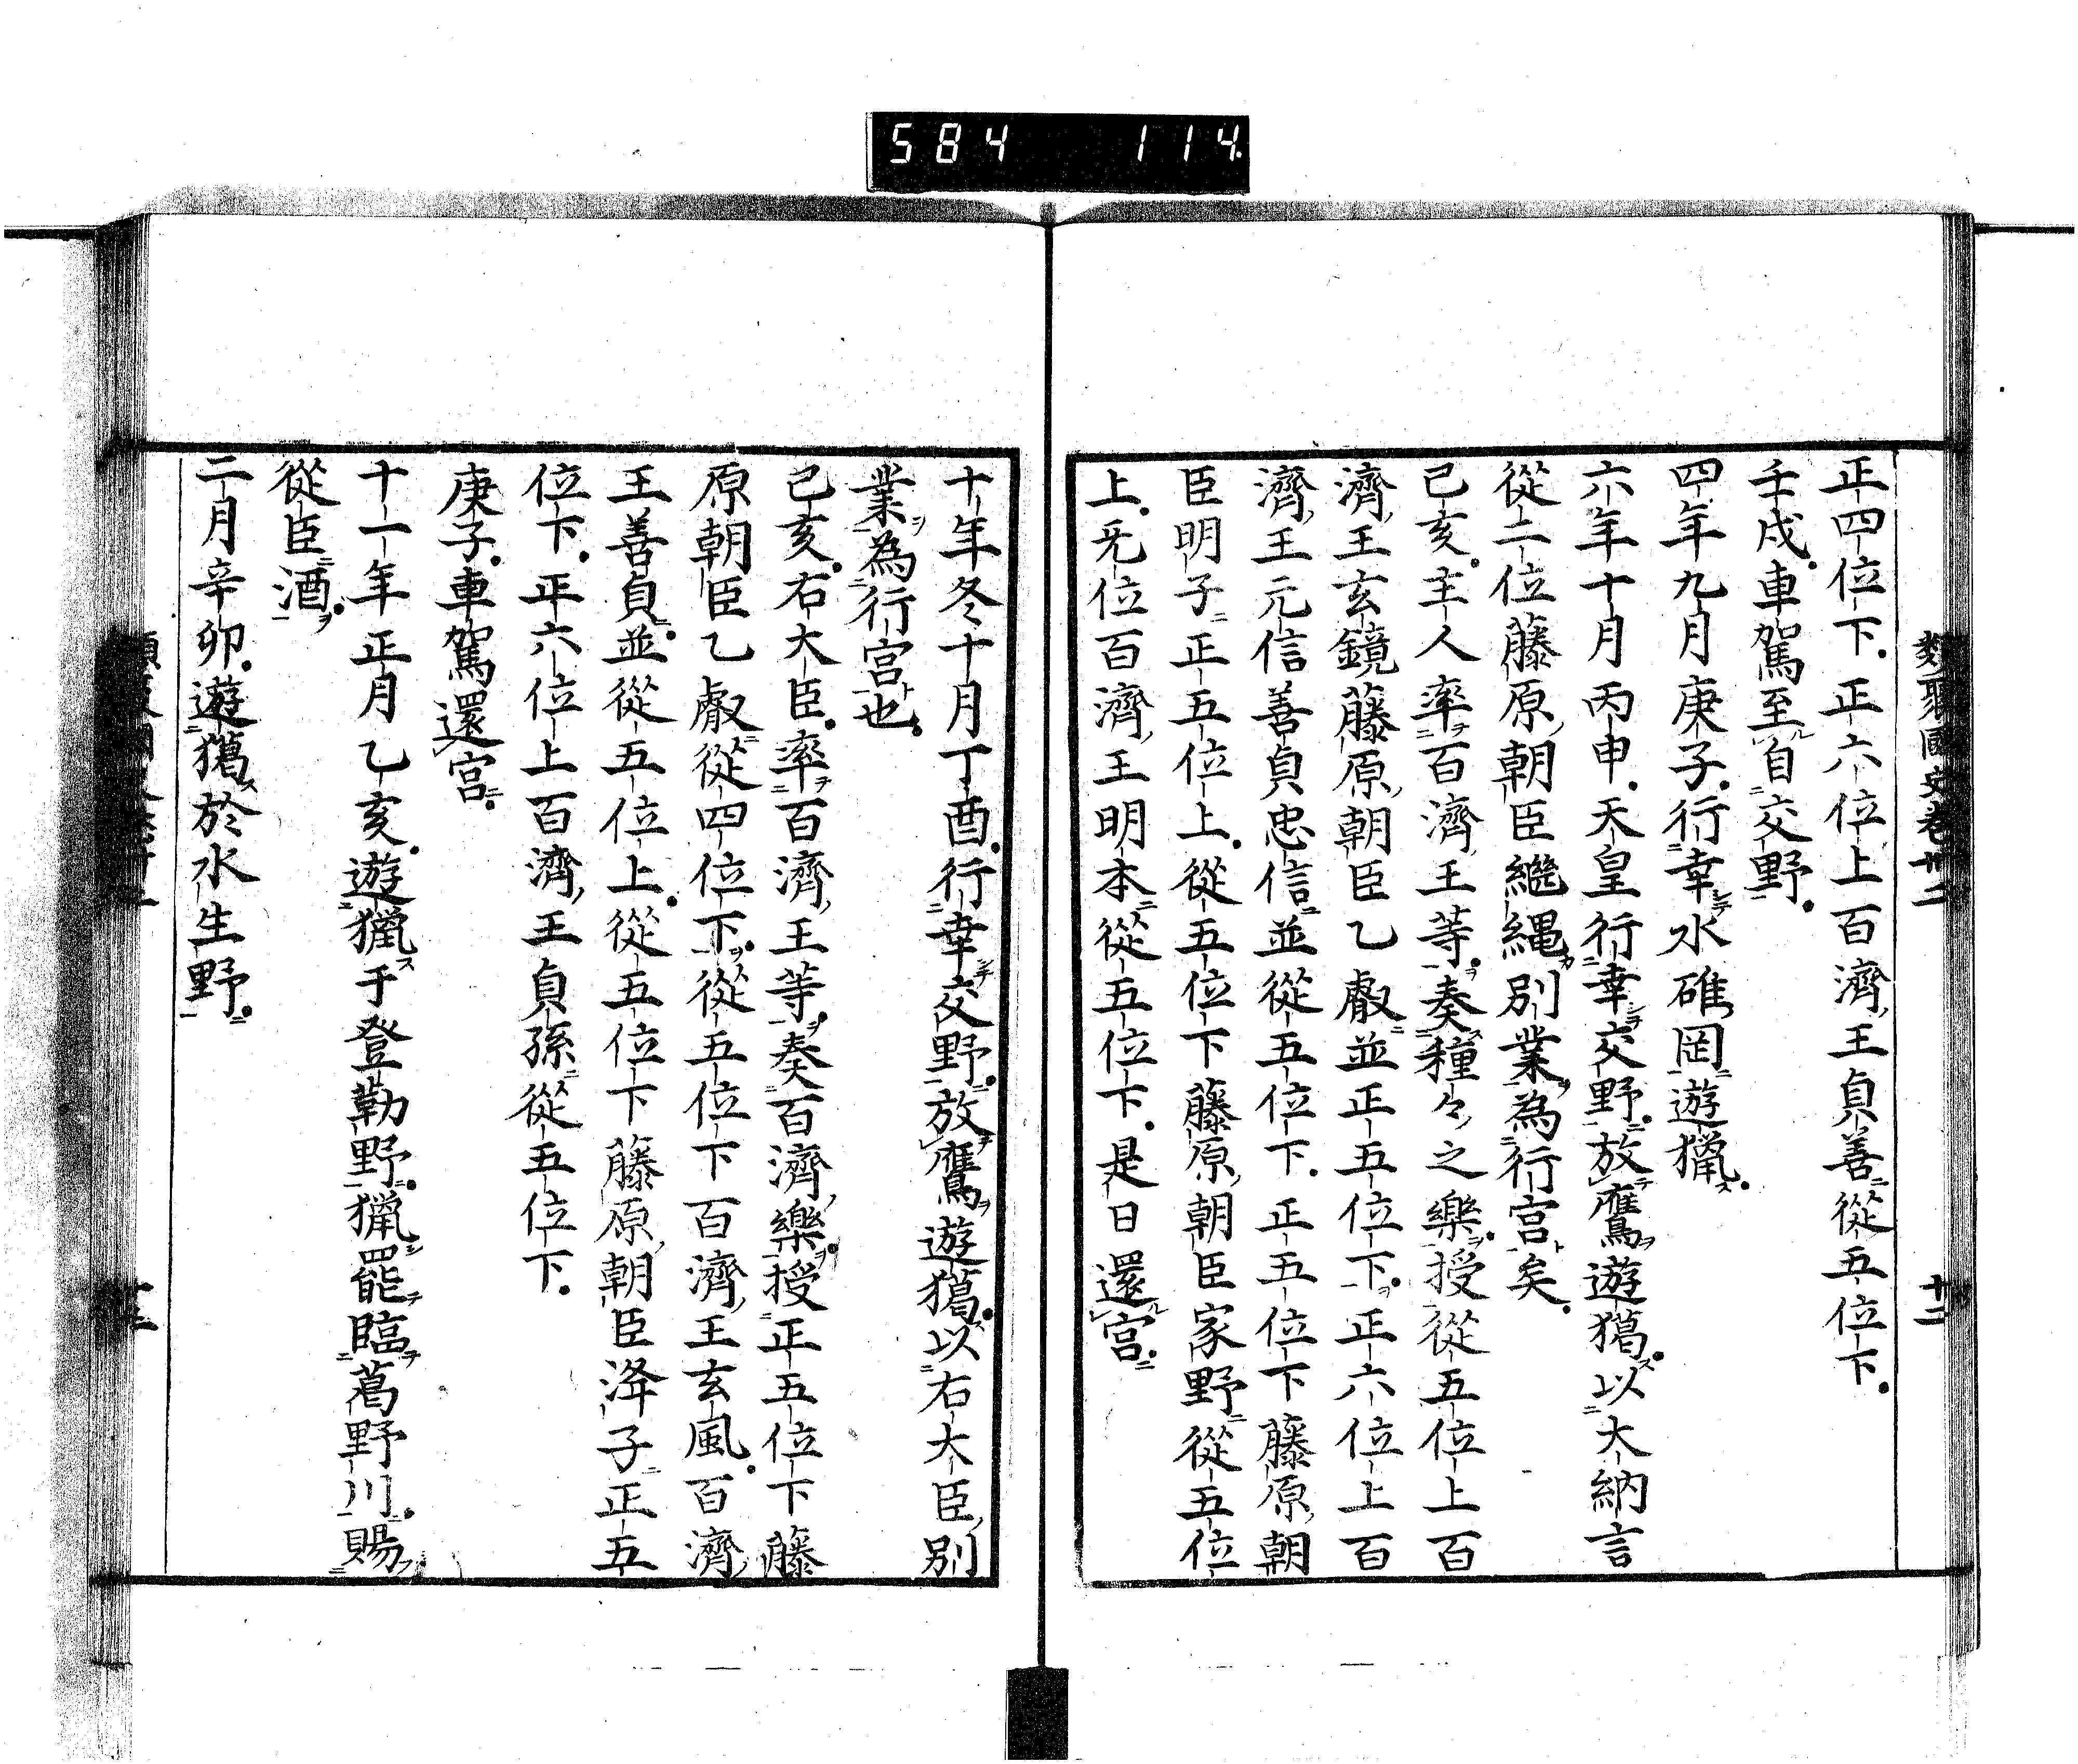 584 114
類聚國史卷卅二 十二
正四位下正六位上百濟王貞善從五位下
壬戌車駕至自交野
四年九月庚子行幸水碓岡遊獵
六年十月丙申天皇行幸交野放鷹遊獦以大納言
從二位藤原朝臣繼縄別業為行宮矣
己亥主人率百濟王等奏種々之樂授從五位上百
濟王玄鏡藤原朝臣乙叡並正五位下正六位上百
濟王元信善貞忠信並從五位下正五位下藤原朝
臣明子正五位上從五位下藤原朝臣家野從五位
上旡位百濟王明本從五位下是日還宮
十年冬十月丁酉行幸交野放鷹遊獦以右大臣別
業為行宮也
己亥右大臣率百濟王等奏百濟樂授正五位下藤
原朝臣乙叡從四位下從五位下百濟王玄風百濟
王善貞並從五位上從五位下藤原朝臣浲子正五
位下正六位上百濟王貞孫從五位下
庚子車駕還宮
十一年正月乙亥遊獵于登勒野獵罷臨葛野川賜
從臣酒
二月辛卯遊獦於水生野